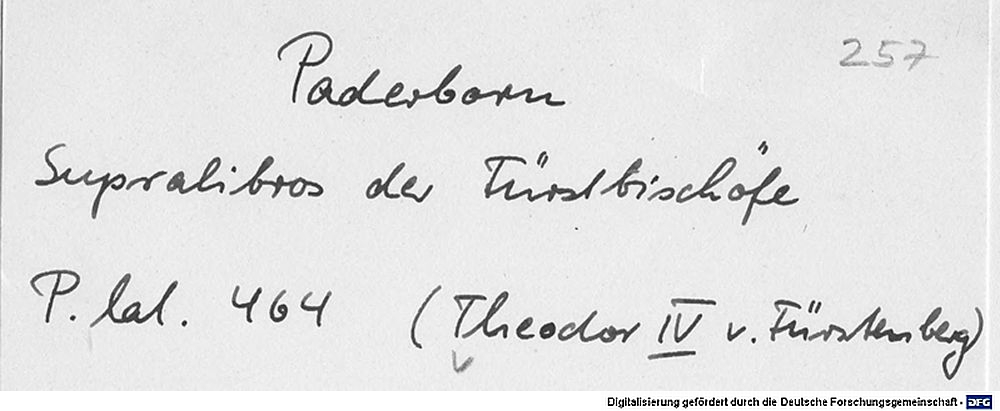 257
Paderborn
Supralibros der Fürstbischöfe
P. lat. 464 (Theodor IV v. Fürstenberg)
Digitalisierung gefördert durch die Deutsche Forschungsgemeinschaft - DFG